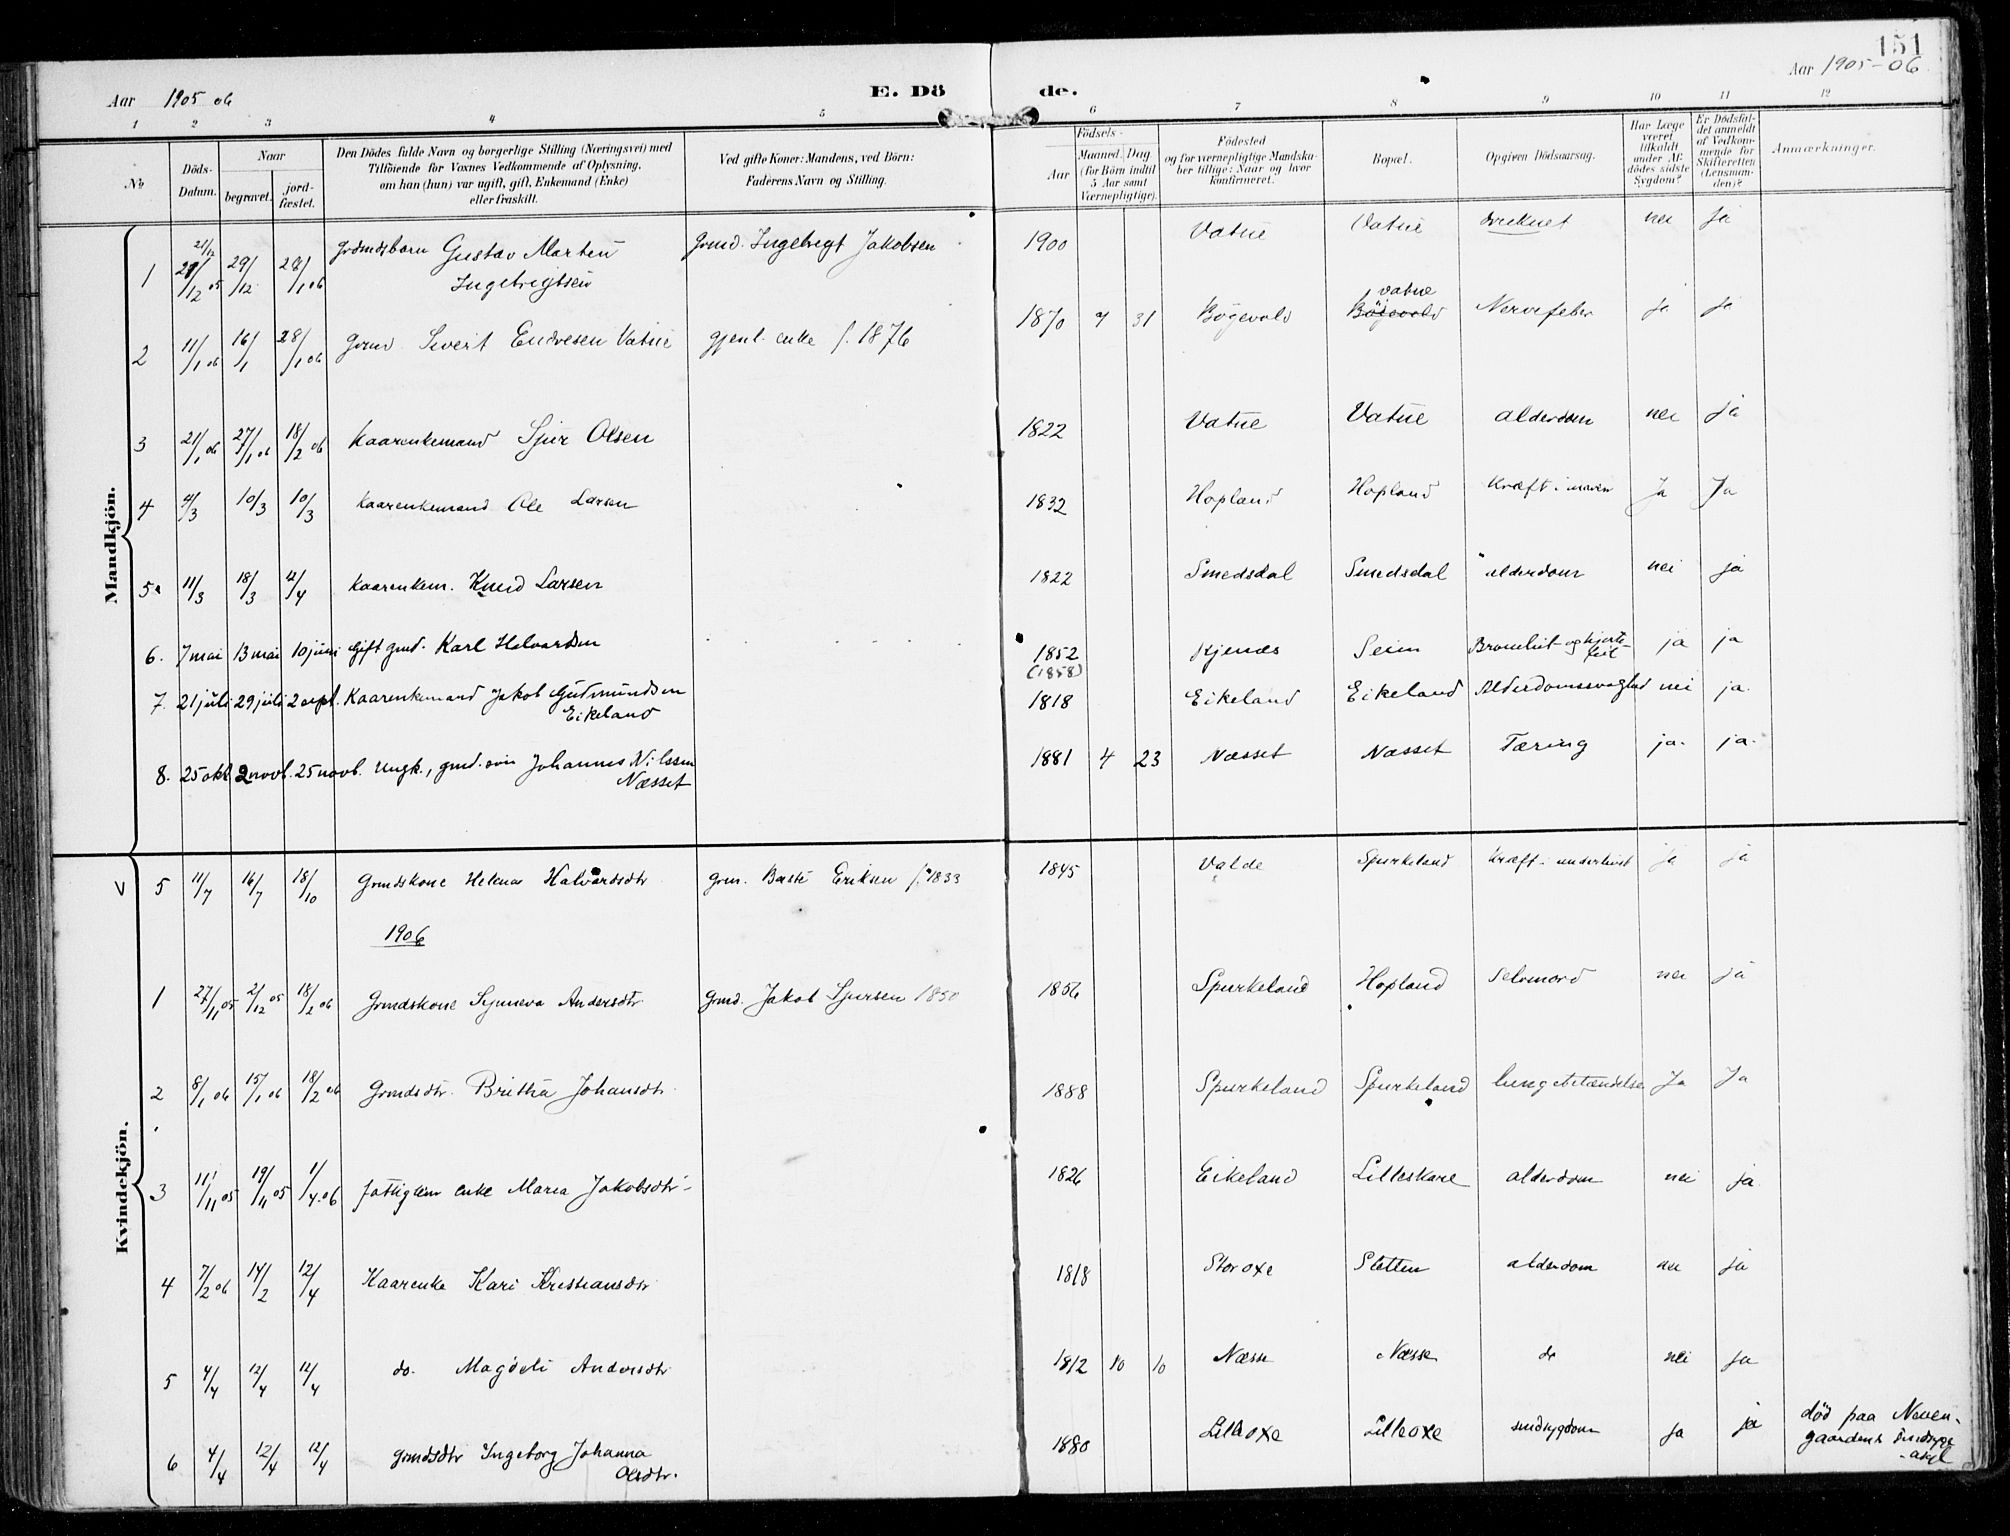 151
Aar 1905 06
E. Dö
de.
Aar 1905-06
1 2 3 4 5 6 7 8 9 10 11 12
No
Döds-Datum.
Naar
begravet.
jord-fæstet.
Den Dödes fulde Navn og borgerlige Stilling (Næringsvei) med
Tilföiende for Voxnes Vedkommende af Oplysning,
om han (hun) var ugift, gift, Enkemand (Enke)
eller fraskilt.
Ved gifte Koner: Mandens, ved Börn:
Faderens Navn og Stilling.
Födsels-
Aar
Maaned. Dag
(for Börn indtil
5 Aar samt
Værnepligtige).
Födested
og for værnepligtige Mandska-
ber tillige: Naar og hvor
konfirmeret.
Bopæl.
Opgiven Dödsaarsag.
Har Læge
været
tilkaldt
under Af-
dödes sidste
Sygdom?
Er Dödsfal-
det anmeldt
af Vedkom-
mende for
Skifteretten
(Lensman-
den)?
Anmærkninger.
Mandkjön.
1 21/12 05 29/12 28/1 06 Grdmdsbarn Gustav Marten Ingebrigtsen Grmd. Ingebrigt Jakobsen 1900 Vatne Vatne druknet nei ja
2 11/1 06 16/1 28/1 06 Grmd. Sivert Endresen Vatne gjenl. enke f. 1876 1870 9 31 Bögevold Vatne Nervefeber ja ja
3 21/1 06 27/1 06 18/2 06 Kaarenkemand Sjur Olsen 1822 Vatne Vatne alderdom nei ja
4 4/3 10/3 10/3 Kaarenkemand Ole Larsen 1832 Hopland Hopland Kræft i maven Ja Ja
5 11/3 18/3 4/4 Kaarenkem. Knud Larsen 1822 Smedsdal Smedsdal alderdom nei ja
6. 7 mai 13 mai 10 juni Gift gmd. Karl Halvardsen 1852 (1858) Kjenæs Seim Bronchit og hjertefeil ja ja
7. 21 juli 29 juli 2 sept. Kaarenkemand Jakob Gudmundsen Eikeland 1818 Eikeland Eikeland Alderdomssvaghed nei ja.
8. 25 okt. 2 novb. 25 novb. Ungk., gmd. søn Johannes Nilssen Næsset 1881 4 23 Næsset Næsset Tæring ja. ja.
Kvindekjön.
V 5 11/7 16/7 18/10 Grmdskone Helena Halvardsdtr grm. Baste Eriksen f. 1833 1845 Valde Spurkeland Kræft i underlivet ja ja
1906
1 27/11 05 2/12 05 18/2 06 Grmdskone Synneva Andersdtr. Grmd. Jakob Sjursen 1850 1856 Spurkeland Hopland Selvmord nei ja
2 8/1 06 15/1 06 18/2 06 Grmdsdtr. Britha Johansdtr. 1888 Spurkeland Spurkeland lungebetændelse Ja Ja
3 11/11 05 19/11 05 1/4 06 fattiglem enke Maria Jakobsdtr 1826 Eikeland Lilleskare alderdom nei ja
4 7/2 06 14/2 12/4 Kaarenke Kari Kristiansdtr 1818 Storoxe Sletten alderdom nei ja
5 4/4 12/4 12/4 do. Magdeli Andersdtr 1812 10 10 Næsse Næsse do nei ja
6 4/4 12/4 12/4 Grmdsdtr Ingeborg Johanna Olsdtr. 1880 Lilleoxe Lilleoxe sindsygdom ja ja død paa Neven-
gaardens sindsyge
-asyl